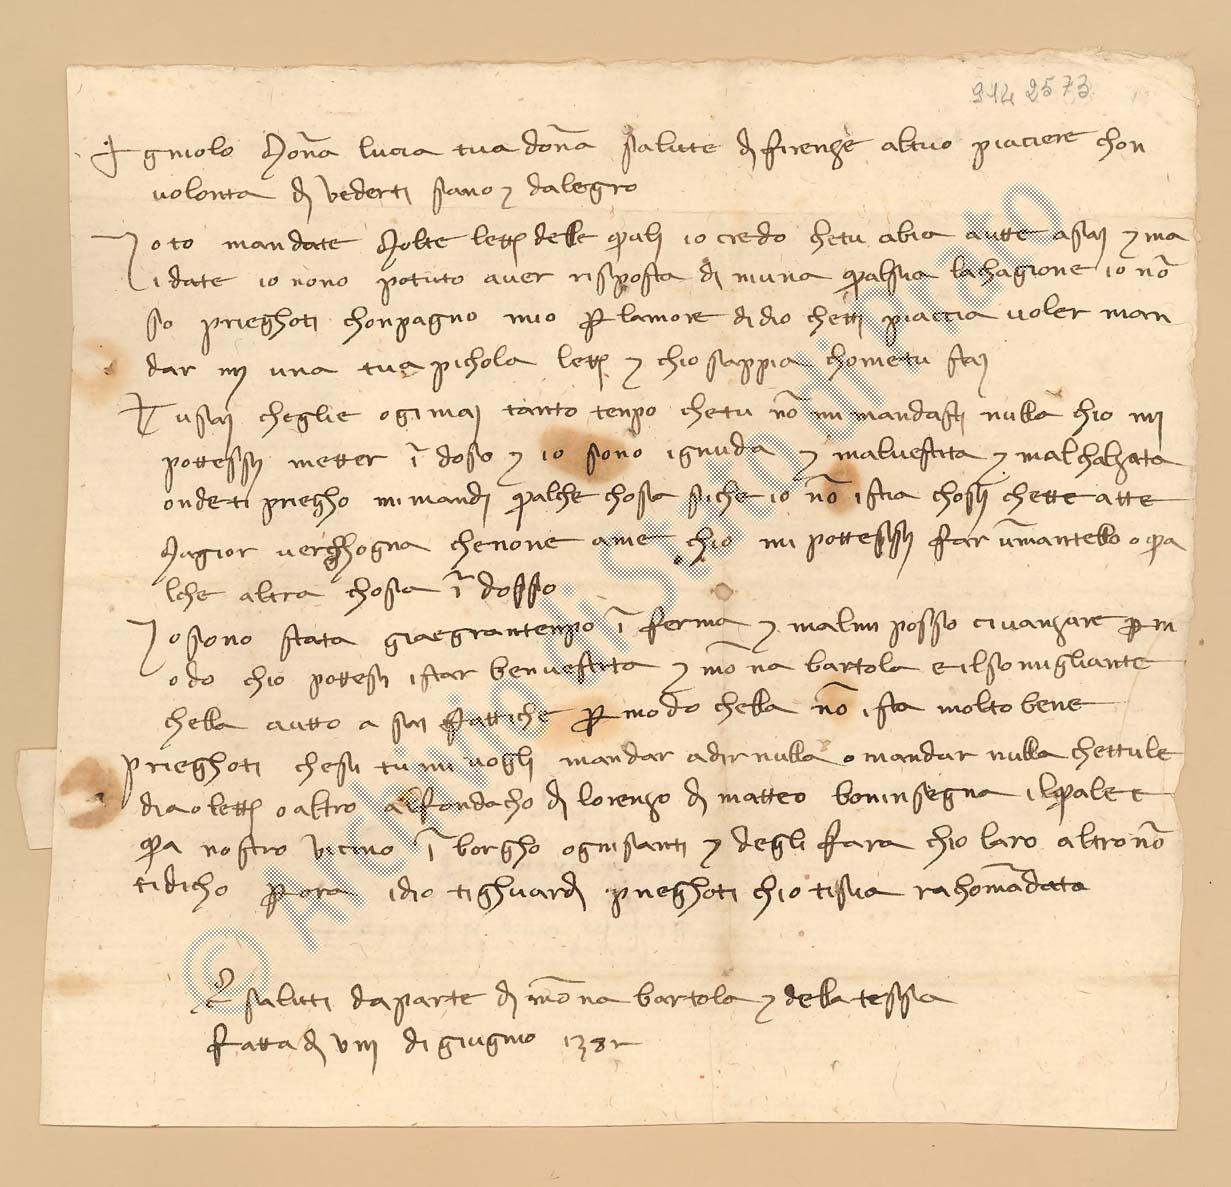 914 2573
gniolo Monã lucia tua donã salute di firenze altuo piaciere chon
volonta di vederti sano e dalegro
Io to mandate Molte lettere delle quali io credo chetu abia autte asai e ma
idate io nono pottuto aver risposta di niuna qualsua lachagione io nõ
so prieghoti chonpagno mio per lamore di dio chetti piaccia voler man
dar mi una tua pichola lettera e chio sappia chometu stai
Tu sai cheglie ogimai tanto tenpo chetu nõ mi mandasti nulla chio mi
pottessi metter ĩ doso e io sono ignuda e malvestita e malchalzata
onde ti priegho mi mandi qualche chosa siche io nõ istia chosi chette atte
Magior verghogna chenone ame chio mi pottessi far ũmantello o qua
lche altra chosa ĩ dosso
Io sono stata gia grantenpo ĩ ferma e malmi posso civanzare per m
odo chio pottesi istar benvestita e mõna bartola e ilsomigliante
chella autto a sai fattiche per modo chella nõ ista molto bene
prieghoti chesi tu mi vogli mandar adir nulla o mandar nulla chettule
dia o lettere o altro alfondacho di lorenzo di matteo boninsegna ilquale e
qua nostro vicino ĩ borgho ognisanti e degli fara chio laro altro nõ
tidicho per ora idio tighuardi prieghoti chio tisia rahomãdata
saluti daparte di mõna bartola e della tessa
fatta di viii di giugno 138
© Archivio di Stato di Prato